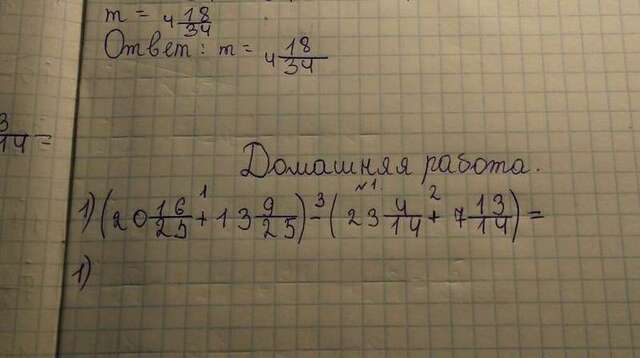 m = 4 18/34
Ответ: m = 4 18/34
3/14 =
Домашняя работа.
№1.
1) (20 16/25 +¹ 13 9/25) -³ (23 4/14 +² 7 13/14) =
1)